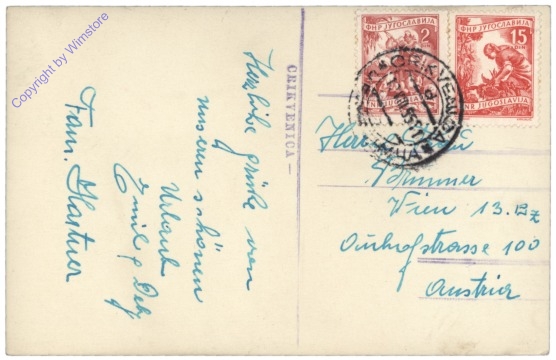 Copyright by Wimstore
Herzliche Grüße von
unseren schönen
Urlaub
Emil &
Fam. Hartner
CRIKVENICA –
ФНР ЈУГОСЛАВИЈА
2
FNR JUGOSLAVIJA
ФНР ЈУГОСЛАВИЈА
15
DIN
FNR JUGOSLAVIJA
CRIKVENICA
Brunner
Wien 13. Bz
Auhofstrasse 100
Austria